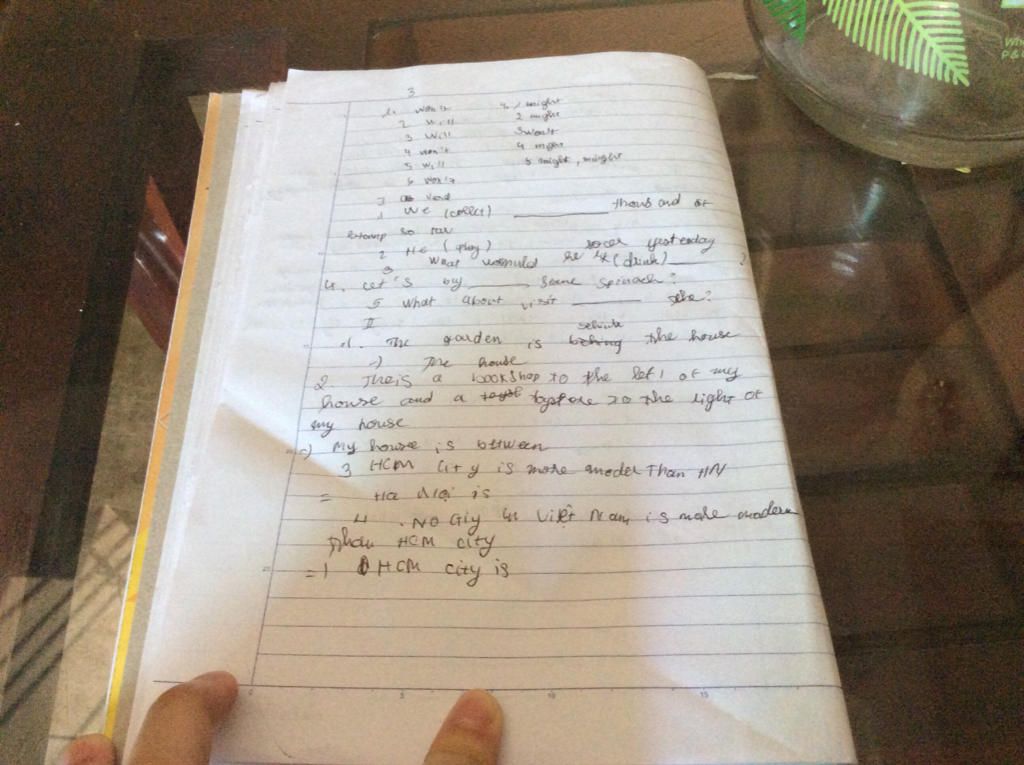 3
1. won't 4 1 might
2 will 2 might
3 will 3 won't
4 won't 4 might
5 will 5 might, might
6 won't
1 We (collect) ________ thousand of
stamp so far
2 He (play) socer yesterday
3 What would he (drink) ____ ?
4. Let's by ____ some spinach?
5 What about visit ____ the?
II
1. The garden is behind the house
=) The house
2. Theis a bookshop to the left of my
house and a toystore to the right of
my house
=) My house is between
3 HCM city is more moder than HN
= Ha Nội is
4. NO City in Việt Nam is more modern
than HCM city
=) HCM city is